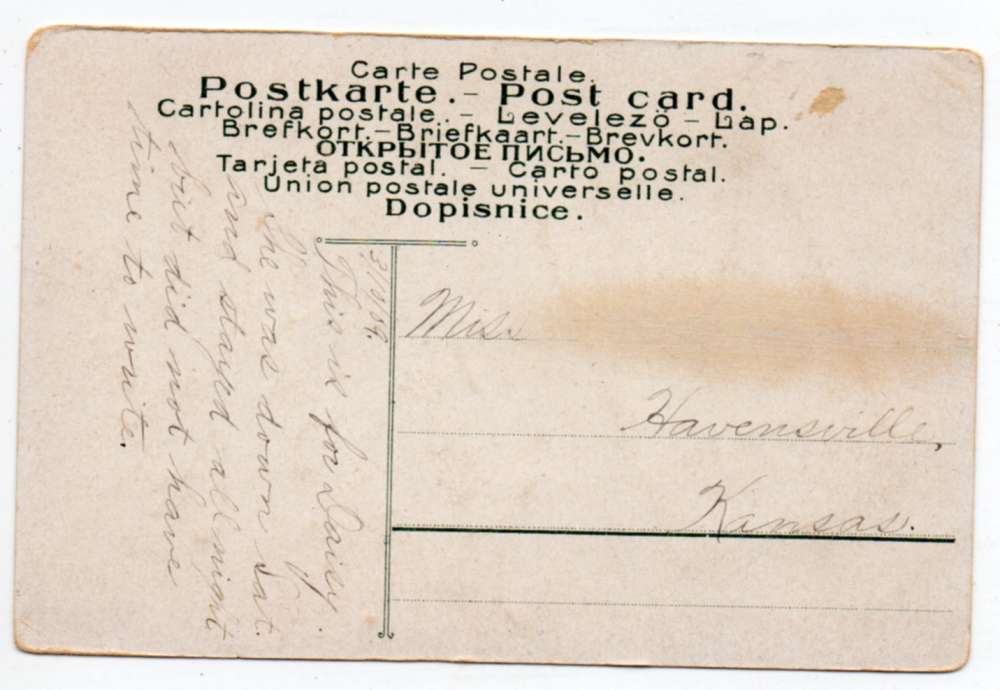 Carte Postale.
Postkarte.- Post card.
Cartolina postale. - Levelező - Lap.
Brefkort.-Briefkaart.-Brevkort.
ОТКРЫТОЕ ПИСЬМО.
Tarjeta postal. - Carto postal.
Union postale universelle.
Dopisnice.
3/9/09.
This is for Daisy.
She was down Sat.
and stayed all night
but did not have
time to write.
Miss
Havensville,
Kansas.